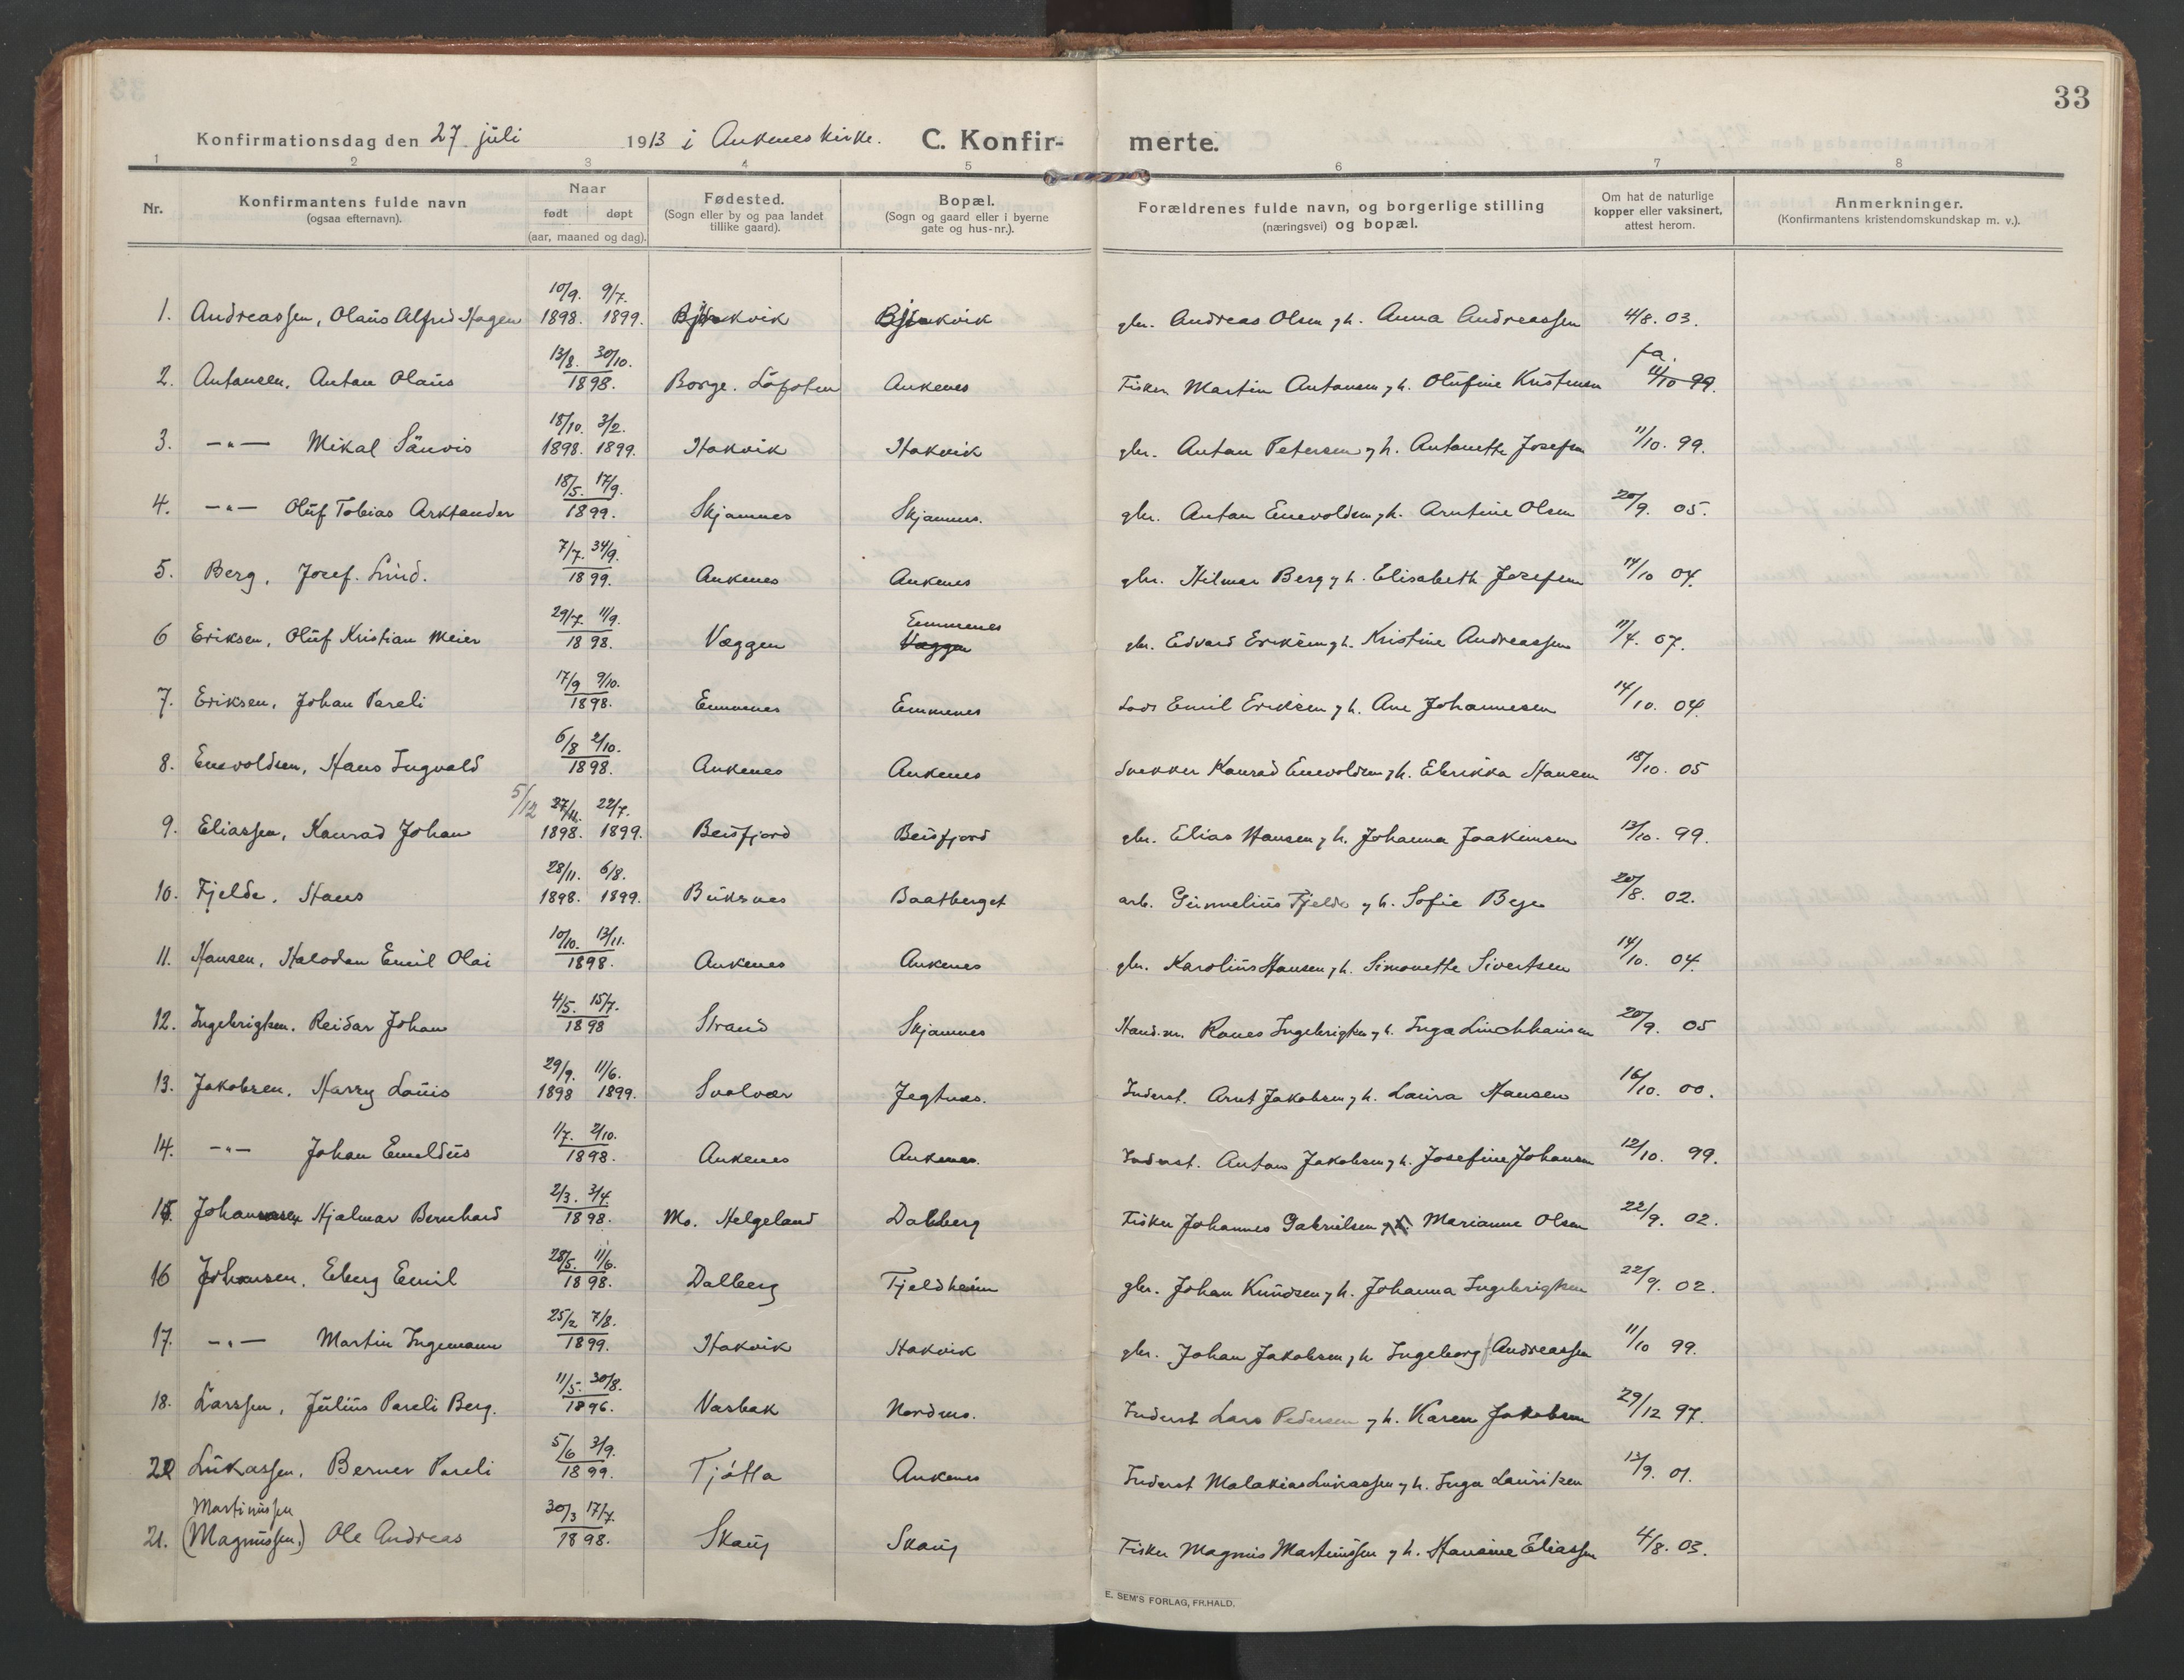 33
Konfirmationsdag den 27 juli 1913 i Ankenes kirke. C. Konfir- merte.
1 2 3 4 5 6 7 8
Nr. Konfirmantens fulde navn (ogsaa efternavn). Naar født døpt (aar, maaned og dag). Fødested. (Sogn eller by og paa landet tillike gaard). Bopæl. (Sogn og gaard eller i byerne gate og hus-nr.). Forældrenes fulde navn, og borgerlige stilling (næringsvei) og bopæl. Om hat de naturlige kopper eller vaksinert, attest herom. Anmerkninger. (Konfirmantens kristendomskundskap m. v.).
1. Andreassen, Olaus Alfred Hagen 10/9. 1898. 9/7. 1899. gbr. Andreas Olsen og h. Anna Andreassen 4/8. 03.
2. Antonsen, Anton Olaus 13/8. 30/10. 1898. Borge. Lofoten Ankenes Fisker Martin Antonsen og h. Olufine Kristensen fa. 11/10 99.
3. -"- Mikal 18/10. 1898. 3/2. 1899. Hakvik Hakvik gbr. Anton Petersen og h. Antonette Josefsen 11/10. 99.
4. -"- Oluf Tobias Arktander 18/5. 17/9. 1899. Skjomnes Skjomnes. gbr. Anton Enevoldsen og h. Arntine Olsen 20/9. 05.
5. Berg, Josef. Lind. 7/7. 1899. Ankenes Ankenes gbr. Hilmar Berg og h. Elisabeth Josefsen 14/10 04.
6 Eriksen, Oluf Kristian Meier 29/7. 11/9. 1898. Væggen Emmenes Væggen gbr. Edvard Eriksen og h. Kristine Andreassen 11/4. 07.
7. Eriksen, Johan Pareli 17/9 9/10. 1898. Emmenes Emmenes Lods Emil Eriksen og h. Ane Johannesen 14/10. 04.
8. Enevoldsen, Hans Ingvald 6/8 2/10. 1898. Ankenes Ankenes Snekker Konrad Enevoldsen og h. Elerikka Hansen 18/10. 05
9. Eliassen, Konrad Johan 5/12 27/11. 1898. 22/7. 1899. Beisfjord Beisfjord gbr. Elias Hansen og h. Johanna Joakimsen 13/10. 99.
10. Fjelde, Hans 28/11. 1898. 6/8. 1899. Buksnes Baatberget arb. Fjelde og h. Sofie 20/8. 02.
11. Hansen, Halvdan Emil Olai 10/10. 13/11. 1898. Ankenes Ankenes gbr. Karolius Hansen og h. Simonette Sivertsen 14/10. 04.
12. Ingebrigtsen. Reidar Johan 4/5. 15/7. 1898 Strand Skjomnes Hand.m. Ranes Ingebrigtsen og h. Inga Linchhausen 20/9. 05
13. Jakobsen, Harry Louis 29/9. 1898 11/6. 1899. Svolvær Jegtnes. Inderst. Arnt Jakobsen og h. Laura Hansen 16/10. 00.
14. -"- Johan Emeldius 1/7. 2/10. 1898. Ankenes Ankenes. Inderst. Anton Jakobsen og h. Josefine Johansen 12/10. 99.
15. Johannesen Hjalmar Bernhard 2/3. 3/4. 1898. Mo. Helgeland Dalberg Fisker Johannes Gabrielsen og Marianne Olsen 22/9. 02.
16 Johansen, Eberg Emil 28/5. 11/6. 1898. Dalberg Fjeldheim gbr. Johan Knudsen og h. Johanna Ingebrigtsen 22/9. 02.
17. -"- Martin Ingemann 25/2 7/8. 1899. Hakvik Hakvik gbr. Johan Jakobsen og h. Ingeborg Andreassen 11/10 99.
18. Larssen, Julius Pareli Berg. 11/5. 30/8. 1896. Vasbak Nordnes. Inderst Lars Pedersen og h. Karen Jakobsen 29/12 97.
20 Lukassen, Berner Pareli 5/6 3/9. 1899. Tjøtta Ankenes Inderst Malakias Lukassen og h. Inga Lauritzen 13/9. 01.
Martinussen
21. (Magnussen,) Ole Andreas 30/3 17/7. 1898. Skaug Skaug Fisker Magnus Martinussen og h. Hansine Eliassen 4/8. 03.
E. SEM'S FORLAG, FR.HALD.